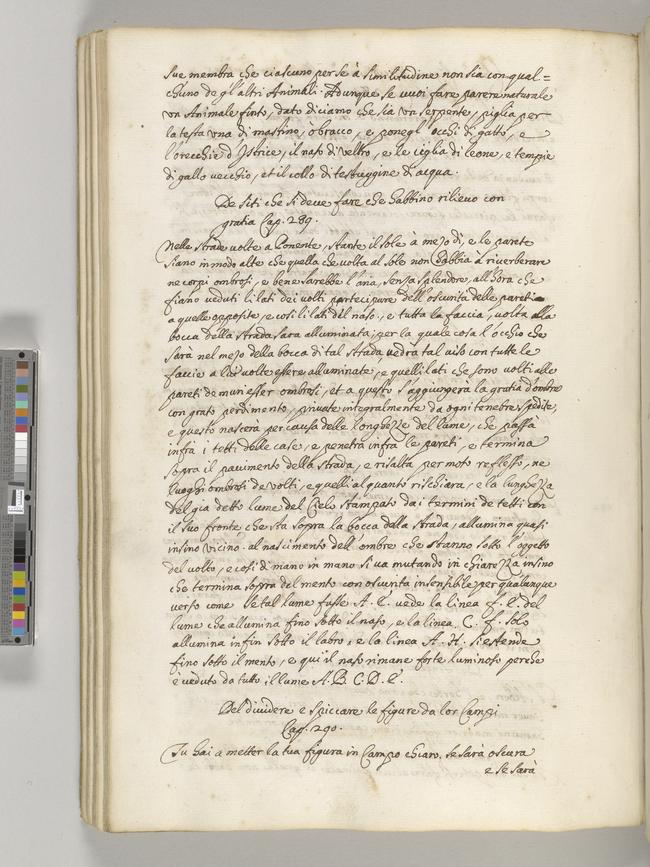 sue membra che ciascuno per se à similitudine non sia con qual=
ch'uno degl'altri Animali. Adunque se vuoi fare parere naturale
un Animale finto, dato diciamo che sia un serpente, piglia per
la testa una di mastino, ò bracco, e ponegl'occhi di gatto, e
l'orecchie d'Istrice, il naso di veltro, e le ciglia di leone, e tempie
di gallo vecchio, et il collo di testuggine di acqua.
De siti che si deve fare che habbino rilievo con
gratia Cap. 289.
Nelle strade volte a Ponente, stante il sole à mezo dì, e le parete
siano in modo alte che quella che volta al sole non habbia à riverberare
ne corpi ombrosi, e bene sarebbe l'aria, senza splendore, all'hora che
fiano veduti li lati dei volti partecipare dell'oscurità delle pareti
a quelle opposite, e così li lati del naso, e tutta la faccia, volta alla
bocca della strada sara alluminata; per la quale cosa l'occhio che
sarà nel mezo della bocca di tal strada, vedrà tal viso con tutte le
faccie a volte essere alluminate, e quelli lati che sono volti alle
pareti de muri esser ombrosi, et a questo s'aggiungerà la gratia d'ombre
con grato perdimento, private integralmente da ogni tenebre spedite,
e questo nascerà per causa delle longhezze del lume, che passa
infra i tetti delle case, e penetra infra le pareti, e termina
sopra il pavimento della strada, e risalta per moto reflesso, ne
luoghi ombrosi de volti, e quelli alquanto rischiara, e la lunghezza
del gia detto lume del Cielo stampato dai termini de tetti con
il suo fronte, che sta sopra la bocca dalla strada, allumina quasi
insino vicino al nascimento dell'ombre che stanno sotto l'oggetto
del volto, e così di mano in mano si va mutando in chiarezza insino
che termina sopra del mento con oscurità insensibile per qualunque
verso come se tal lume fusse A. E. vede la linea f. E. del
lume che allumina fino sotto il naso, e la linea C. f. solo
allumina infin sotto il labro, e la linea A. H. si estende
fino sotto il mento, e qui il naso rimane forte luminoso perche
è veduto da tutto il lume A. B. C. D. E.
Del dividere e spiccare le figure da lor Campi
Cap. 290.
Tu hai a metter la tua figura in Campo chiaro, se sarà oscura
e se sarà